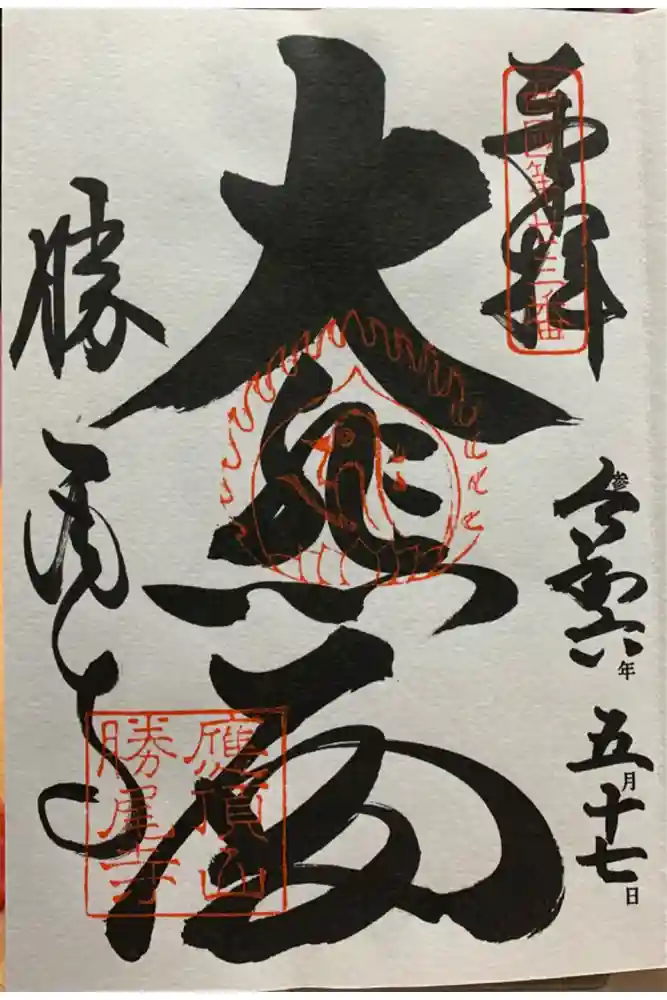 奉拝
西國第廿三番
参
令和六年五月十七日
大悲殿
應頂山
勝尾寺
勝尾寺